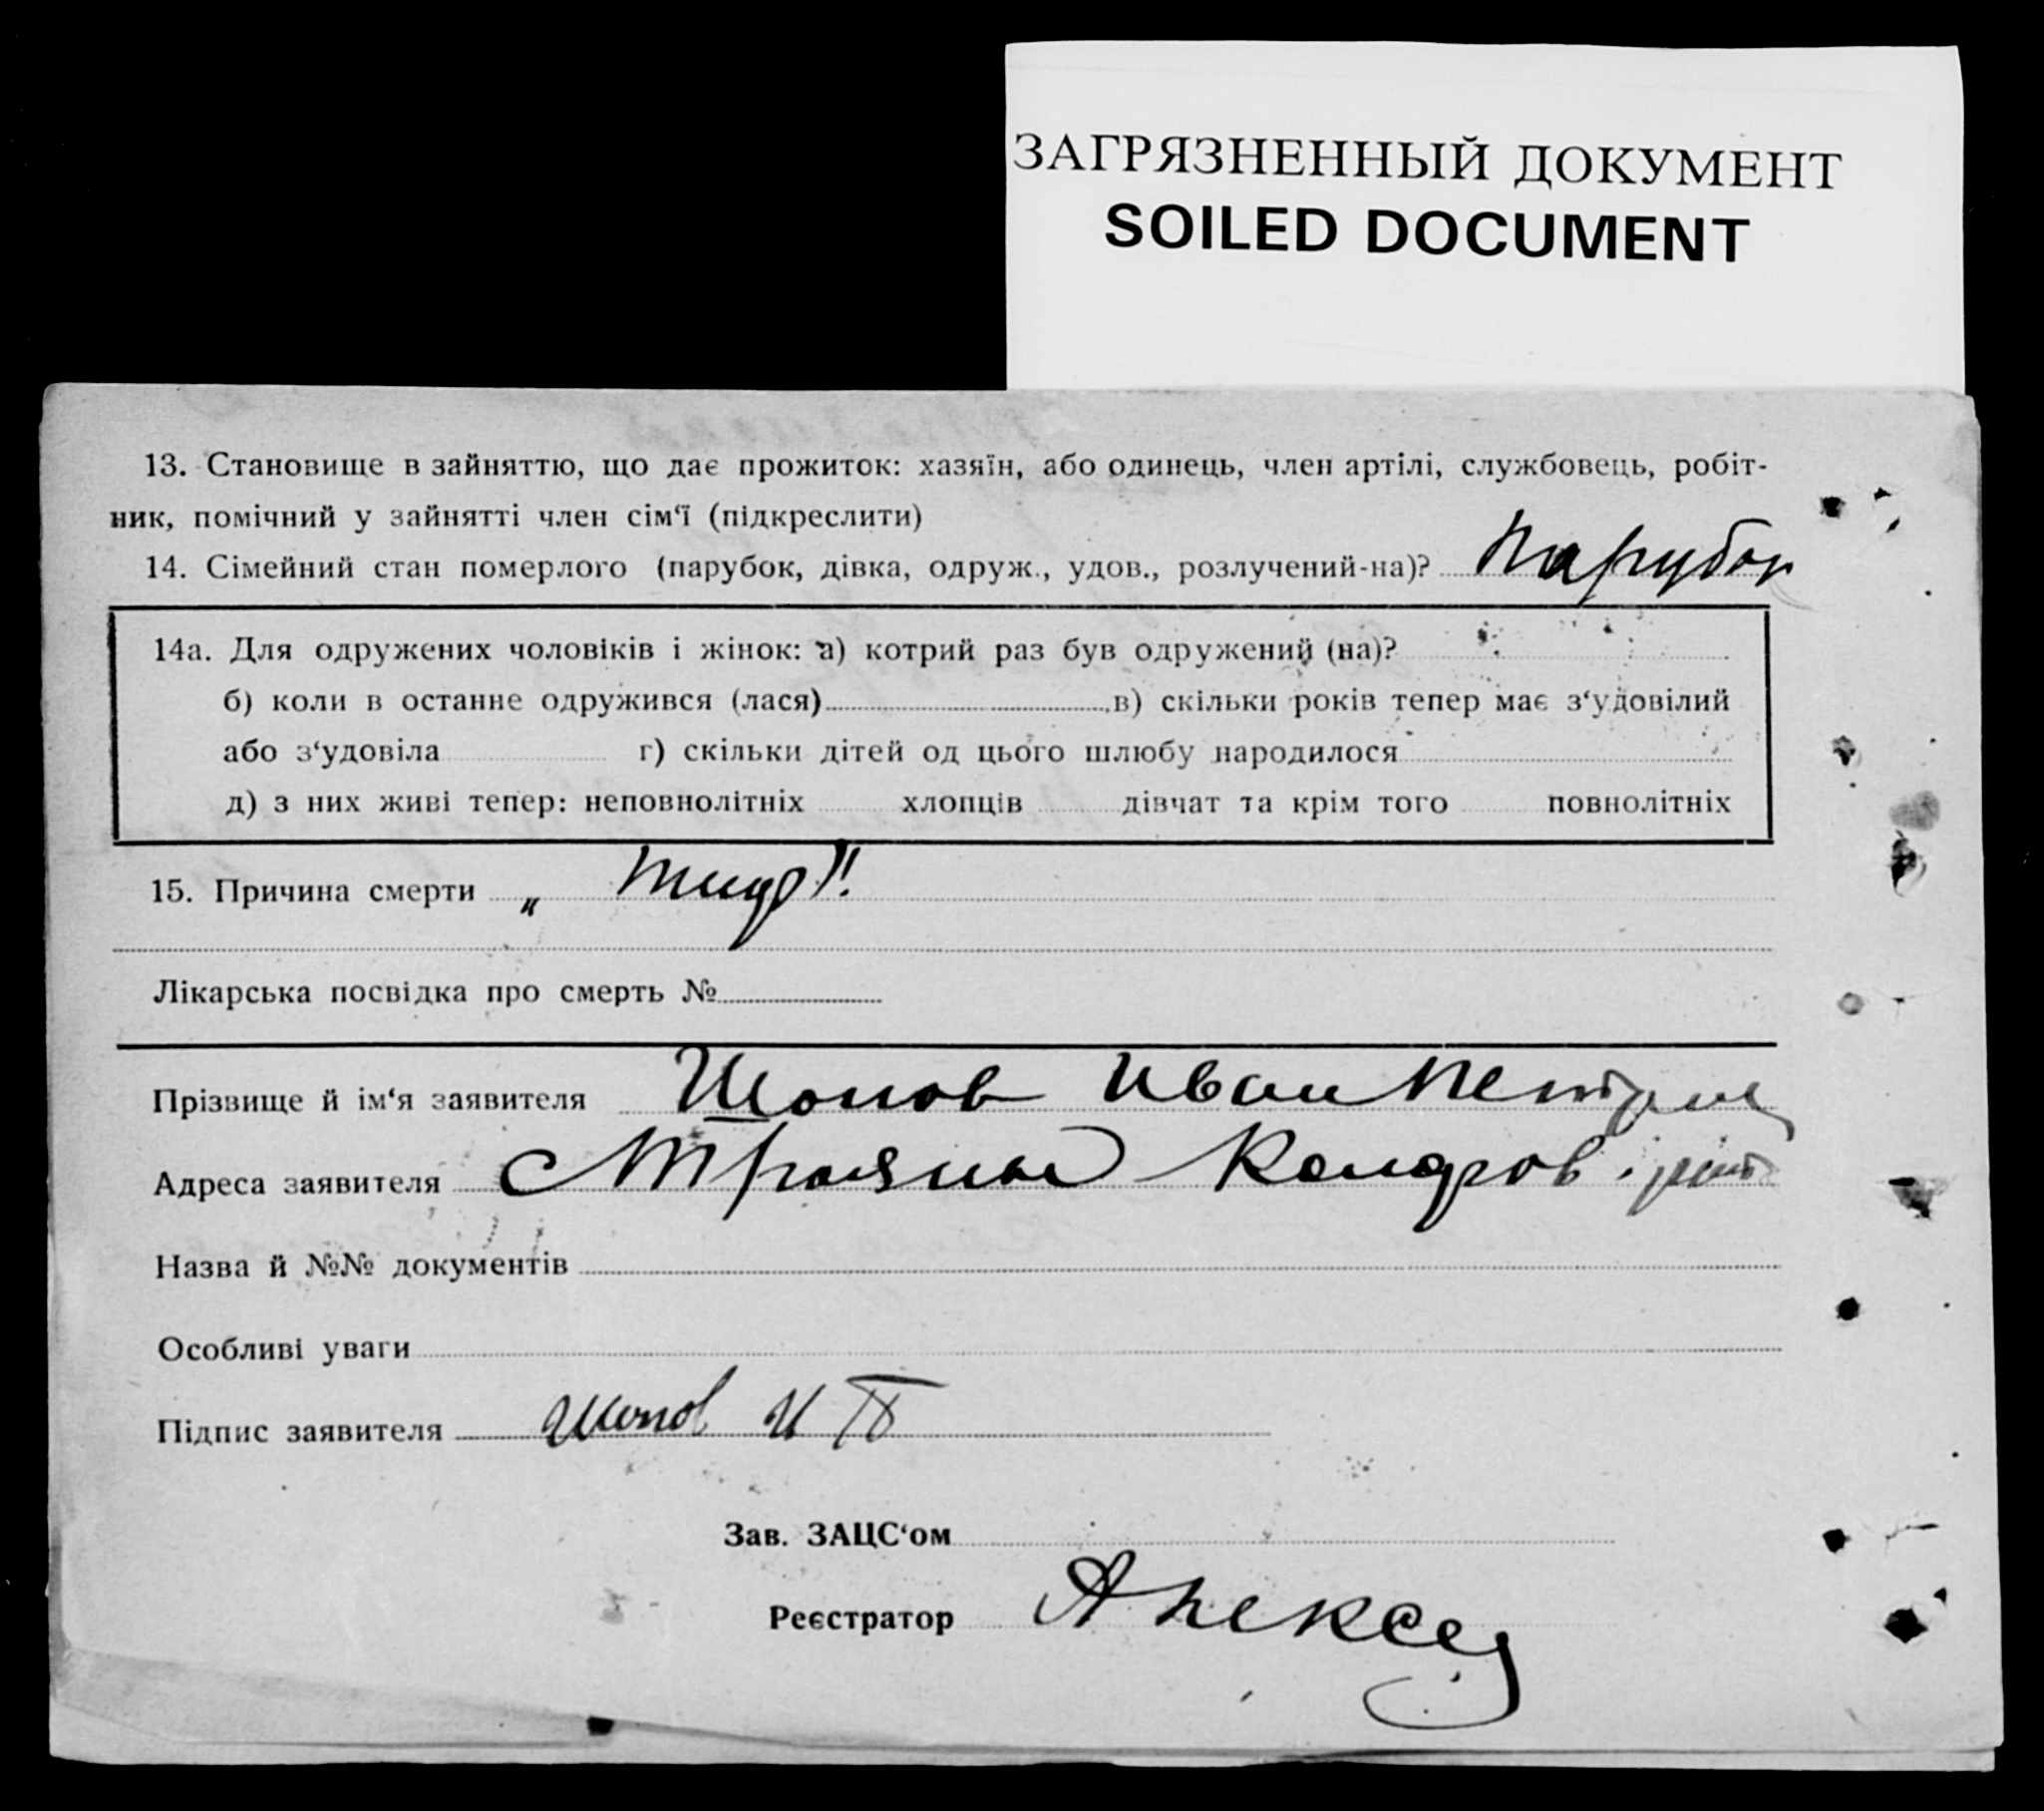 ЗАГРЯЗНЕННЫЙ ДОКУМЕНТ
SOILED DOCUMENT
13. Становище в зайняттю, що дає прожиток: хазяїн, або одинець, член артілі, службовець, робіт-
ник, помічний у зайнятті член сім‘ї (підкреслити)
14. Сімейний стан померлого (парубок, дівка, одруж., удов., розлучений-на)? Парубок
14а. Для одружених чоловіків і жінок: а) котрий раз був одружений (на)?
б) коли в останнє одружився (лася) в) скільки років тепер має з‘удовілий
або з‘удовіла г) скільки дітей од цього шлюбу народилося
д) з них живі тепер: неповнолітніх хлопців дівчат та крім того повнолітніх
15. Причина смерти
Лікарська посвідка про смерть №
Прізвище й ім‘я заявителя Шопов Иван
Адреса заявителя
Назва й №№ документів
Особливі уваги
Підпис заявителя Шопов И П
Зав. ЗАЦС‘ом
Реєстратор Алексе